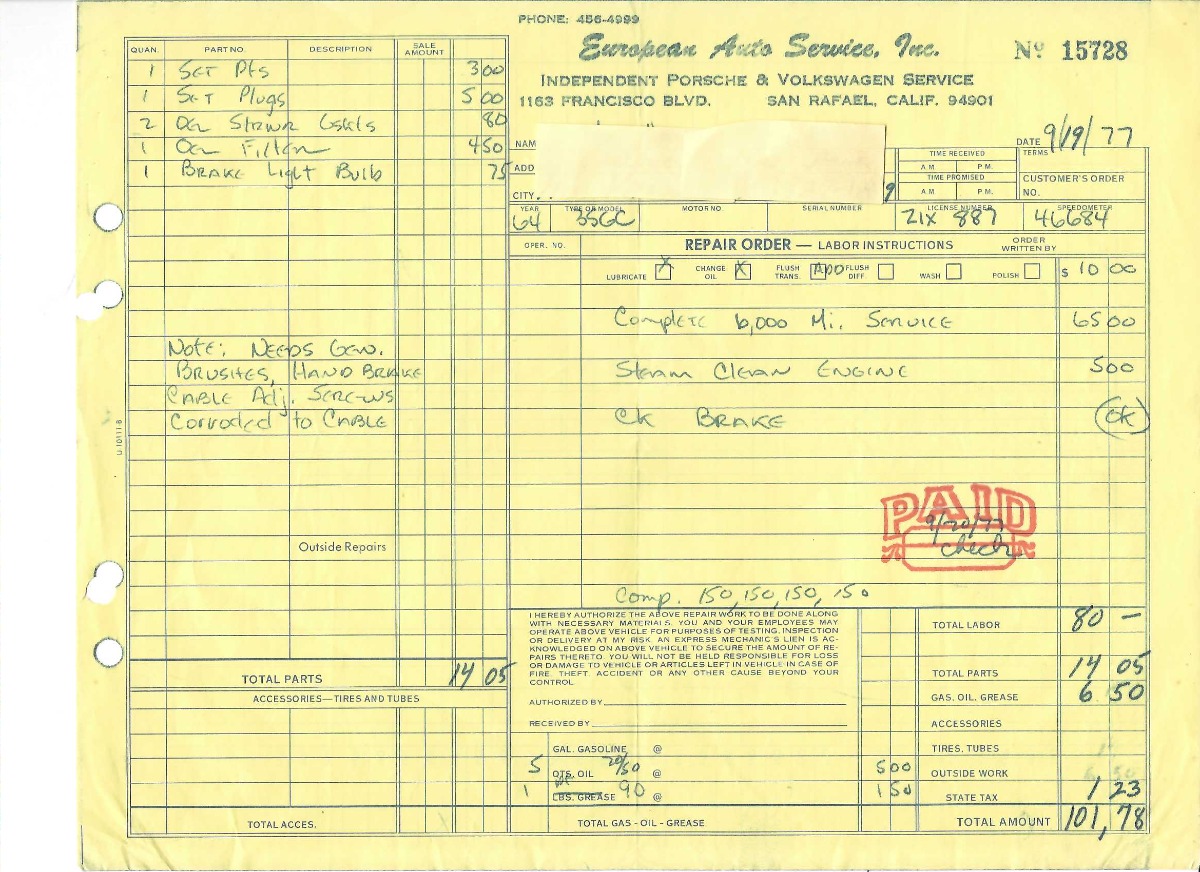 PHONE: 456-4999
European Auto Service, Inc.
Nº 15728
INDEPENDENT PORSCHE & VOLKSWAGEN SERVICE
1163 FRANCISCO BLVD. SAN RAFAEL, CALIF. 94901
QUAN. PART NO. DESCRIPTION SALE AMOUNT
1 SET Pts 3 00
1 SET Plugs 5 00
2 Oil Strnr Gskts 80
1 Oil Filter 4 50
1 BRAKE Light Bulb 75
Note: NEEDS GEN.
BRUSHES, HAND BRAKE
CABLE Adj. SCREWS
Corroded to CABLE
U-10111-8
Outside Repairs
TOTAL PARTS 14 05
ACCESSORIES—TIRES AND TUBES
TOTAL ACCES.
NAM
DATE 9/19/77
ADD
CITY
9
TIME RECEIVED
A M P M.
TIME PROMISED
A M P M.
TERMS
CUSTOMER'S ORDER NO.
YEAR TYPE OR MODEL MOTOR NO. SERIAL NUMBER LICENSE NUMBER SPEEDOMETER
64 356C ZIX 887 46684
OPER. NO. REPAIR ORDER — LABOR INSTRUCTIONS ORDER WRITTEN BY
LUBRICATE X CHANGE OIL X FLUSH TRANS. ADD FLUSH DIFF WASH POLISH $ 10 00
Complete 6,000 Mi. SERVICE 65 00
STEAM Clean ENGINE 5 00
CK BRAKE OK
PAID
9/20/77
check
Comp. 150, 150, 150, 150
I HEREBY AUTHORIZE THE ABOVE REPAIR WORK TO BE DONE ALONG
WITH NECESSARY MATERIALS. YOU AND YOUR EMPLOYEES MAY
OPERATE ABOVE VEHICLE FOR PURPOSES OF TESTING, INSPECTION
OR DELIVERY AT MY RISK. AN EXPRESS MECHANIC'S LIEN IS AC-
KNOWLEDGED ON ABOVE VEHICLE TO SECURE THE AMOUNT OF RE-
PAIRS THERETO. YOU WILL NOT BE HELD RESPONSIBLE FOR LOSS
OR DAMAGE TO VEHICLE OR ARTICLES LEFT IN VEHICLE IN CASE OF
FIRE, THEFT, ACCIDENT OR ANY OTHER CAUSE BEYOND YOUR
CONTROL.
AUTHORIZED BY
RECEIVED BY
GAL. GASOLINE @
5 QTS. OIL 20/50 @ 5 00
1 LBS. GREASE 90 @ 1 50
TOTAL GAS - OIL - GREASE
TOTAL LABOR 80 —
TOTAL PARTS 14 05
GAS. OIL. GREASE 6 50
ACCESSORIES
TIRES. TUBES
OUTSIDE WORK
STATE TAX 1 23
TOTAL AMOUNT 101, 78